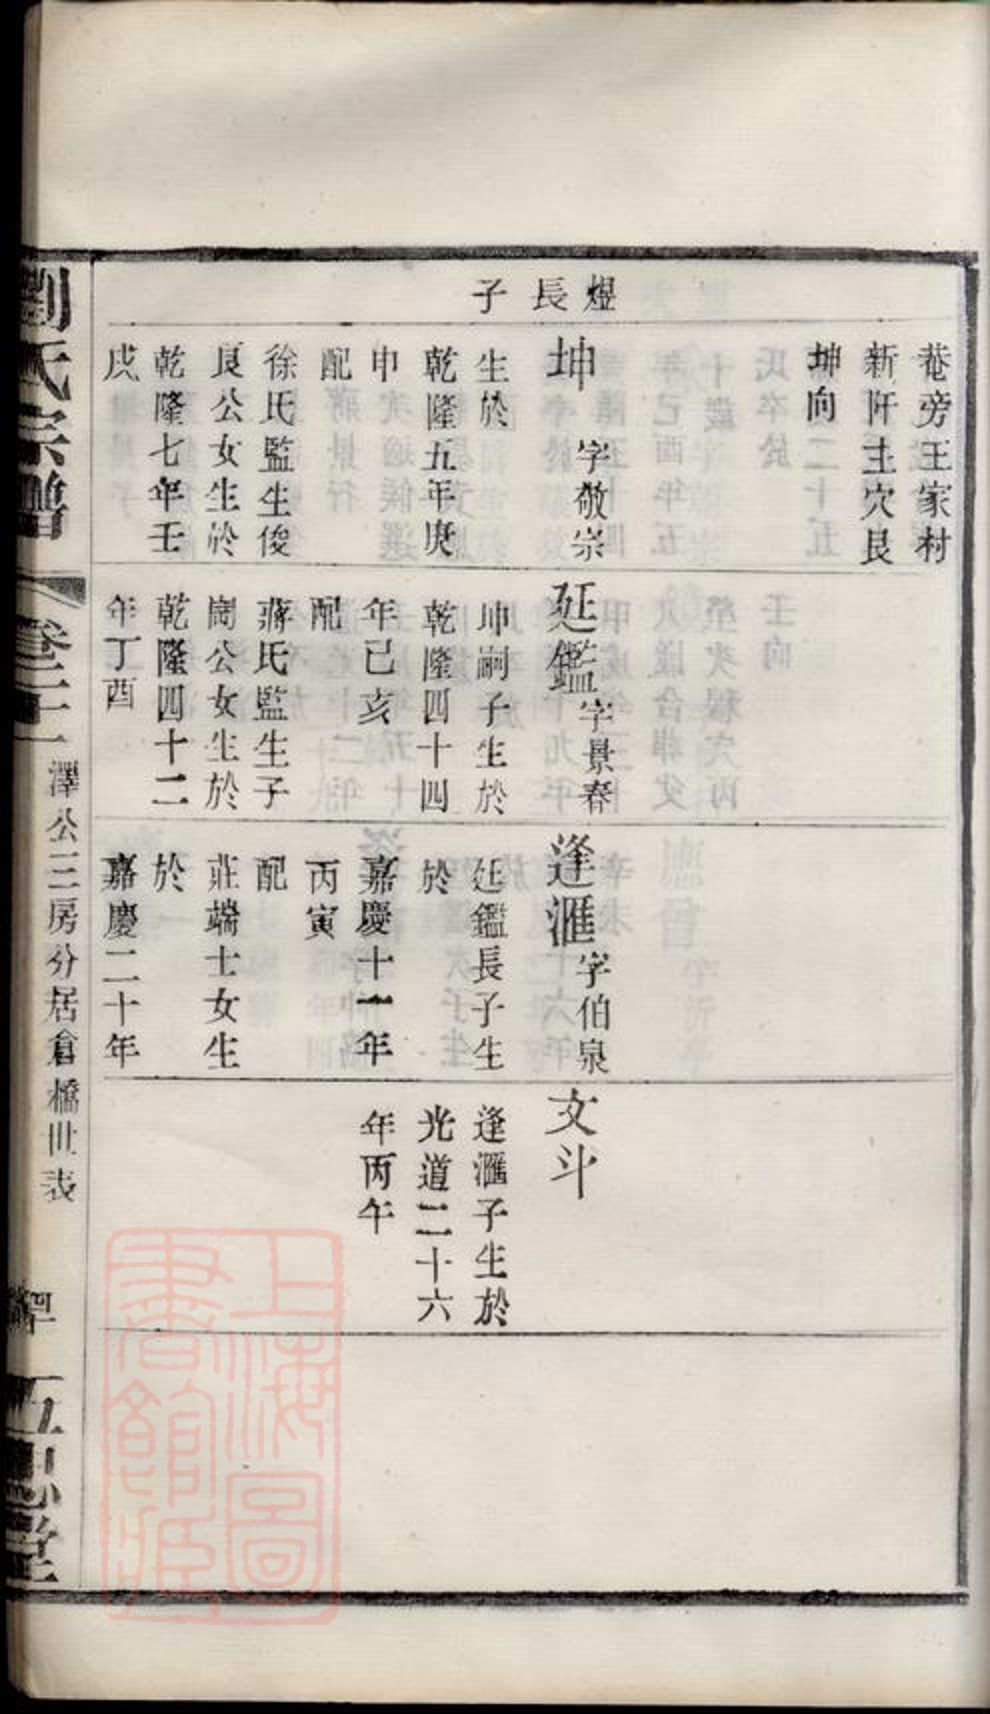 煜長子
菴旁王家村
新阡主穴艮
坤向
坤 字敬宗
生於
乾隆五年庚
申
配
徐氏監生俊
良公女生於
乾隆七年壬
戌
延鑑字景春
坤嗣子生於
乾隆四十四
年己亥
配
蔣氏監生子
閎公女生於
乾隆四十二
年丁酉
逢滙字伯泉
延鑑長子生
於
嘉慶十一年
丙寅
配
莊端士女生
於
嘉慶二十年
文斗
逢滙子生於
光道二十六
年丙午
劉氏宗譜
澤公三房分居倉橋世表
五思堂
上海圖
書館藏